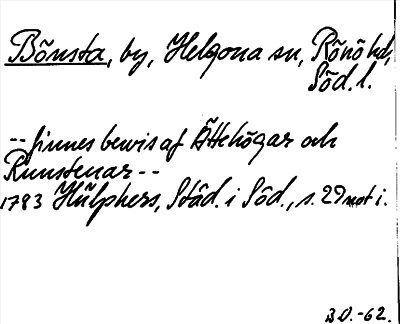 Bönsta, by, Helgona sn, Rönö hd,
Söd. l.
-- finnes bewis af Ättehögar och
Runstenar --
1783 Hülphers, Städ. i Söd., s. 29 not i.
B.D.-62.